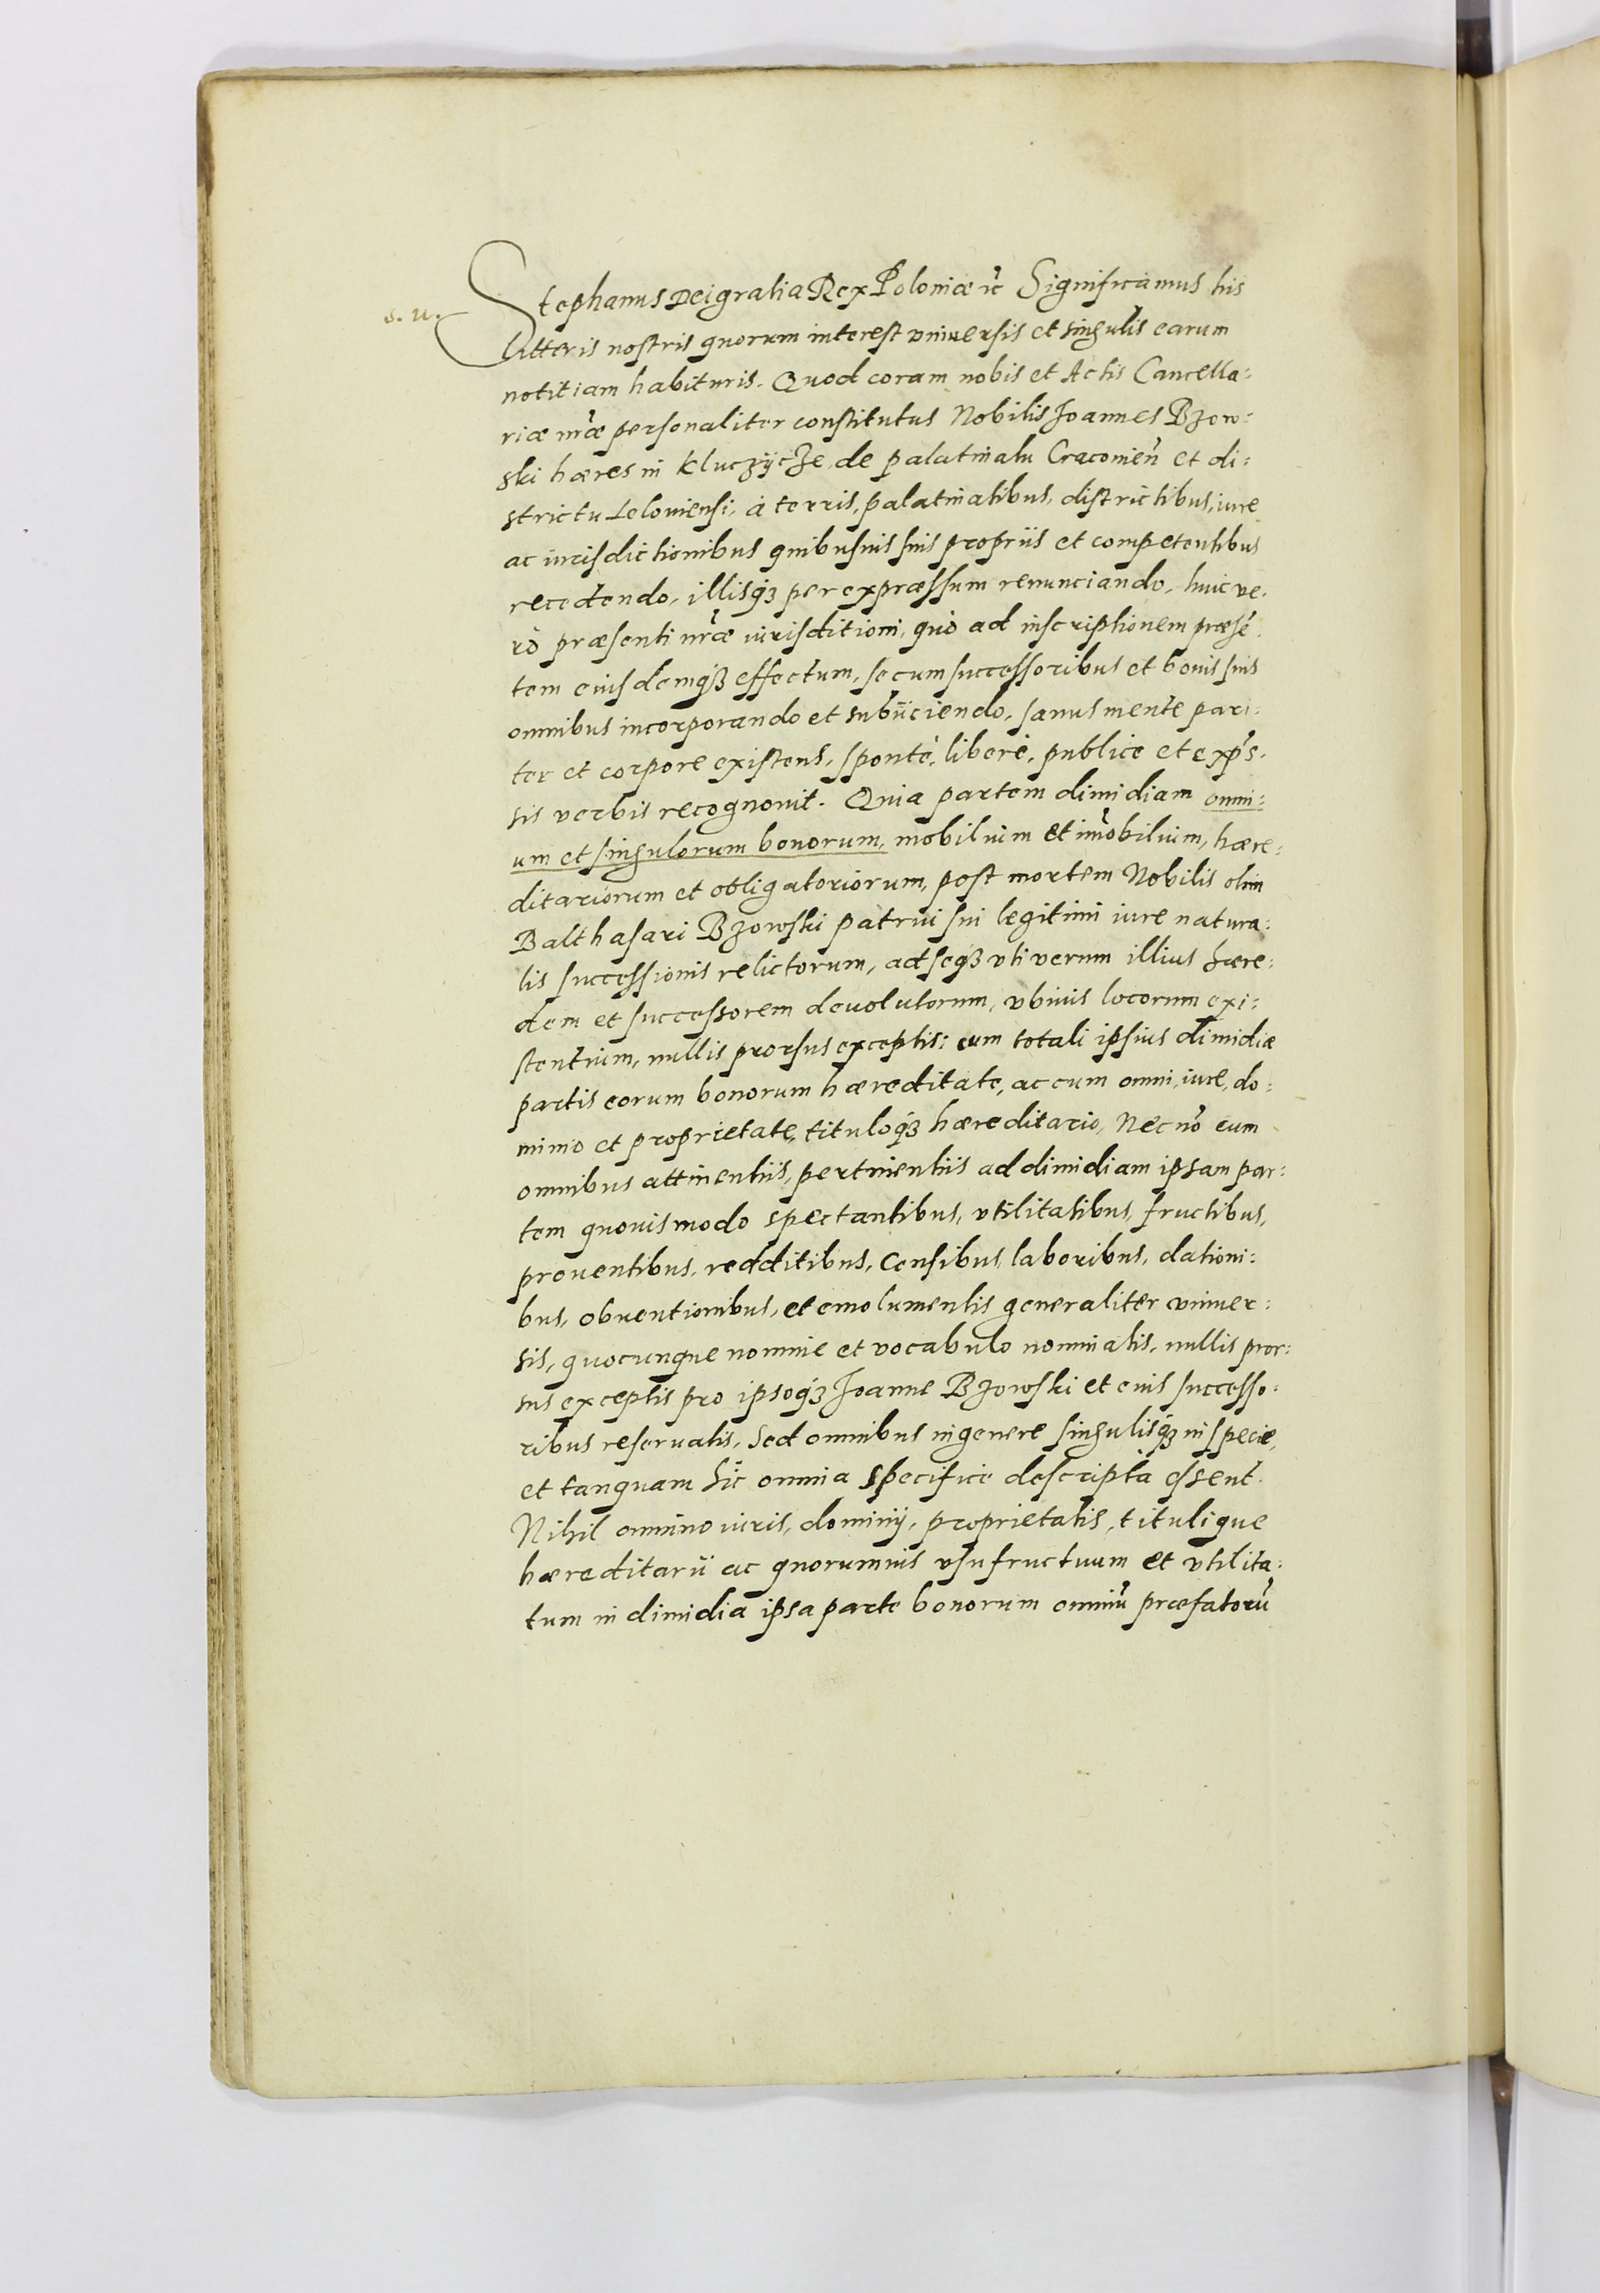 s. u.
Stephanus Dei gratia Rex Poloniæ ꝛc̃ Significamus his
litteris nostris quorum interest vniuersis et singulis earum
notitiam habituris. Quod coram nobis et Actis Cancella:
riæ nr̃æ personaliter constitutus Nobilis Joannes Bzow:
ski hæres in Kluczÿcze, de palatinatu Cracouień et di:
strictu Leloviensi, à terris, palatinatibus, districtibus, iure
ac iurisdictionibus quibusuis suis propriis et competentibus
recedendo, illisq́ꝫ per expræssum renunciando, huic ve:
rò præsenti nr̃æ iurisditioni, quò ad inscriptionem præsẽ
tem eiusdemq́ꝫ effectum, se cum successoribus et bonis suis
omnibus incorporando et subÿciendo, sanus mente pari:
ter et corpore existens, spontè, liberè, publice et exp̃s:
sis verbis recognouit. Quia partem dimidiam omni:
um et singulorum bonorum, mobilium et im̃obilium, hære:
ditariorum et obligatoriorum, post mortem Nobilis olim
Balthasari Bzowski patrui sui legitimi iure natura:
lis successionis relictorum, ad seq́ꝫ vti verum illius hære:
dem et successorem deuolutorum, vbiuis locorum exi:
stentium, nullis prorsus exceptis: cum totali ipsius dimidiæ
partis eorum bonorum hæreditate, ac cum omni iure, do:
minio et proprietate, tituloq́ꝫ hæreditario, Nec nõ cum
omnibus attinentiis, pertinentiis ad dimidiam ipsam par:
tem quouismodo spectantibus, vtilitatibus, fructibus,
prouentibus, redditibus, Censibus, laboribus, dationi:
bus, obuentionibus, et emolumentis generaliter vniuer:
sis, quocunque nomine et vocabulo nominatis, nullis pror:
sus exceptis pro ipsoq́ꝫ Joanne Bzowski et eius successo:
ribus reseruatis, Sed omnibus in genere singulisq́ꝫ in specie,
et tanquam hic̃ omnia specifice descripta essent.
Nihil omnino iuris, dominÿ, proprietatis, titulique
hæreditarii ac quorumuis vsufructuum et vtilita:
tum in dimidia ipsa parte bonorum omniũ præfatorũ